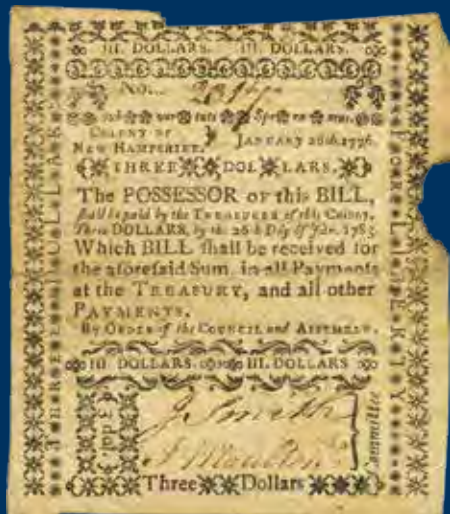 III. DOLLARS. III. DOLLARS.
No.
COLONY OF
NEW HAMPSHIRE. } JANUARY 26th. 1776.
THREE DOLLARS.
The POSSESSOR OF this BILL,
shall be paid by the TREASURER of this Colony,
Three DOLLARS, by the 26th Day of Jan. 178
Which BILL shall be received for
the aforesaid Sum, in all Payments
at the TREASURY, and all other
PAYMENTS.
By ORDER of the COUNCIL and ASSEMBLY.
III DOLLARS. III. DOLLARS
3 dol.
J Smith
J Moulton
Committee
Three Dollars
THREE DOLLARS
FOR LIBERTY